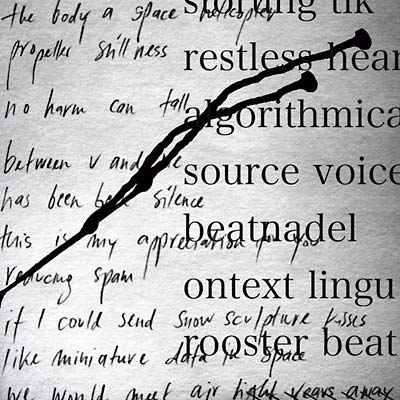 the body a space helicopter
propeller stillness
no harm can fall
between v and me
has been be silence
this is my appreciation for you
reducing spam
if I could send snow sculpture kisses
like miniature data in space
we would meet air light years away
storung tik
restless hear
algorithmica
source voice
beatnadel
ontext lingu
rooster beat